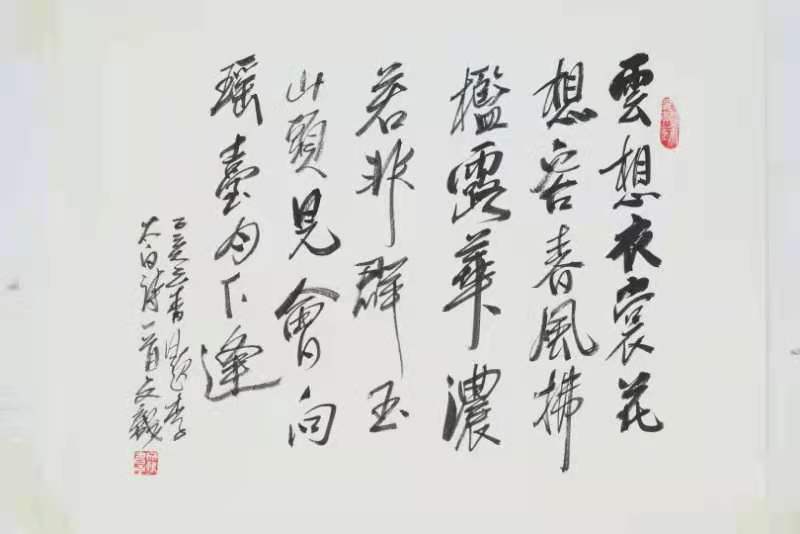 雲想衣裳花
想容春風拂
檻露華濃
若非群玉
山頭見會向
瑶臺月下逢
己亥立春錄李
太白詩一首文戰